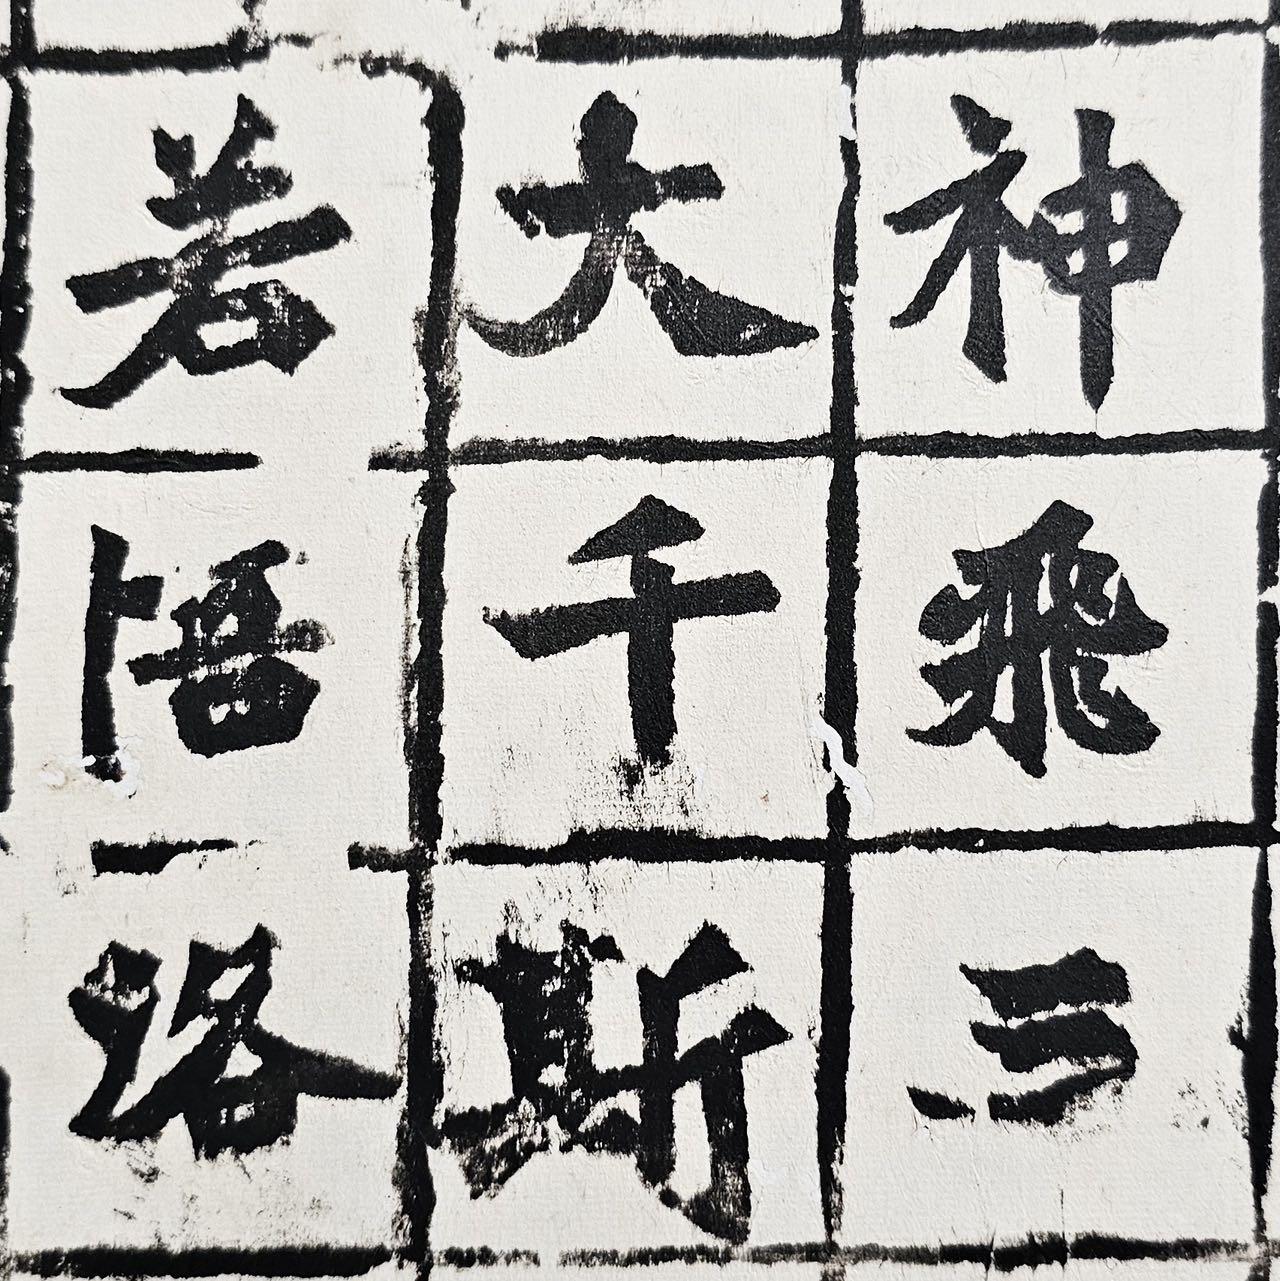 神飛三
大千斯
若悟路